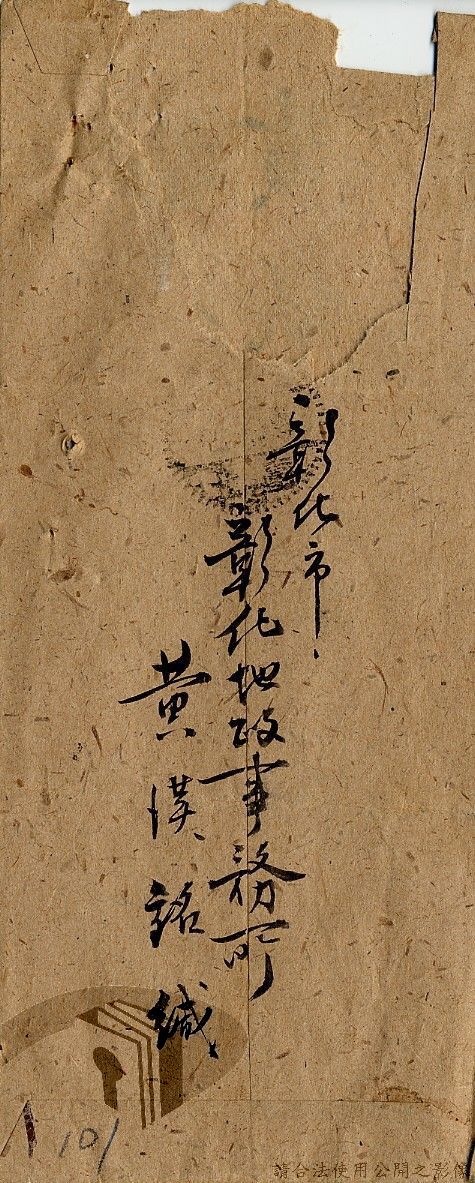 彰化市、
彰化地政事務所
黃漢銘緘
101
請合法使用公開之影像